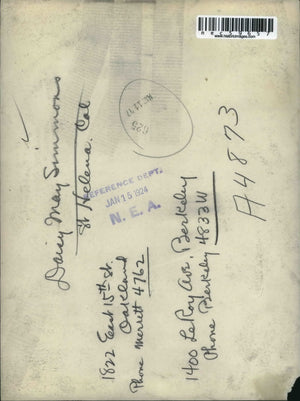 www.historicimages.com
Daisy May Simmons
St Helena. Cal
REFERENCE DEPT.
JAN 15 1924
N. E. A.
A4873
1822 East 15th St.
Oakland
Phone Merritt 4762
1400 LeRoy Ave, Berkeley
Phone Berkeley 4833W